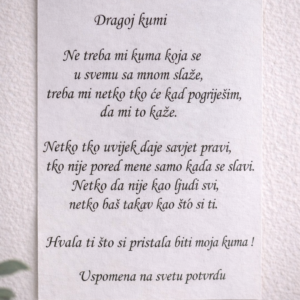 Dragoj kumi
Ne treba mi kuma koja se
u svemu sa mnom slaže,
treba mi netko tko će kad pogriješim,
da mi to kaže.
Netko tko uvijek daje savjet pravi,
tko nije pored mene samo kada se slavi.
Netko da nije kao ljudi svi,
netko baš takav kao što si ti.
Hvala ti što si pristala biti moja kuma !
Uspomena na svetu potvrdu